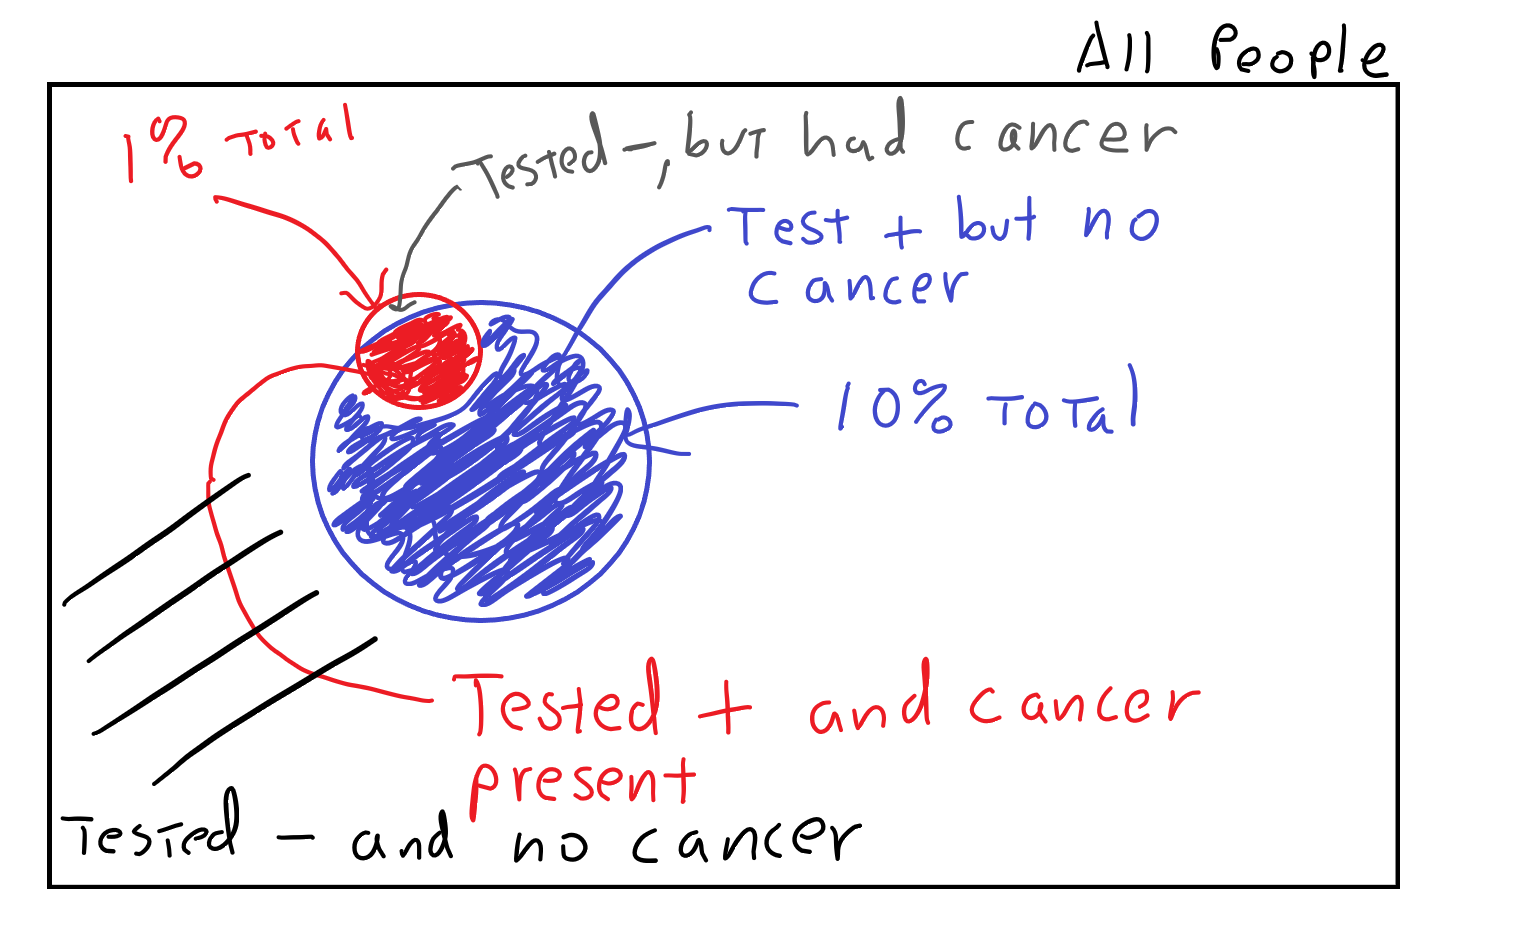 All People
1% Total
Tested -, but had cancer
Test + but no
cancer
10% Total
Tested + and cancer
present
Tested - and no cancer